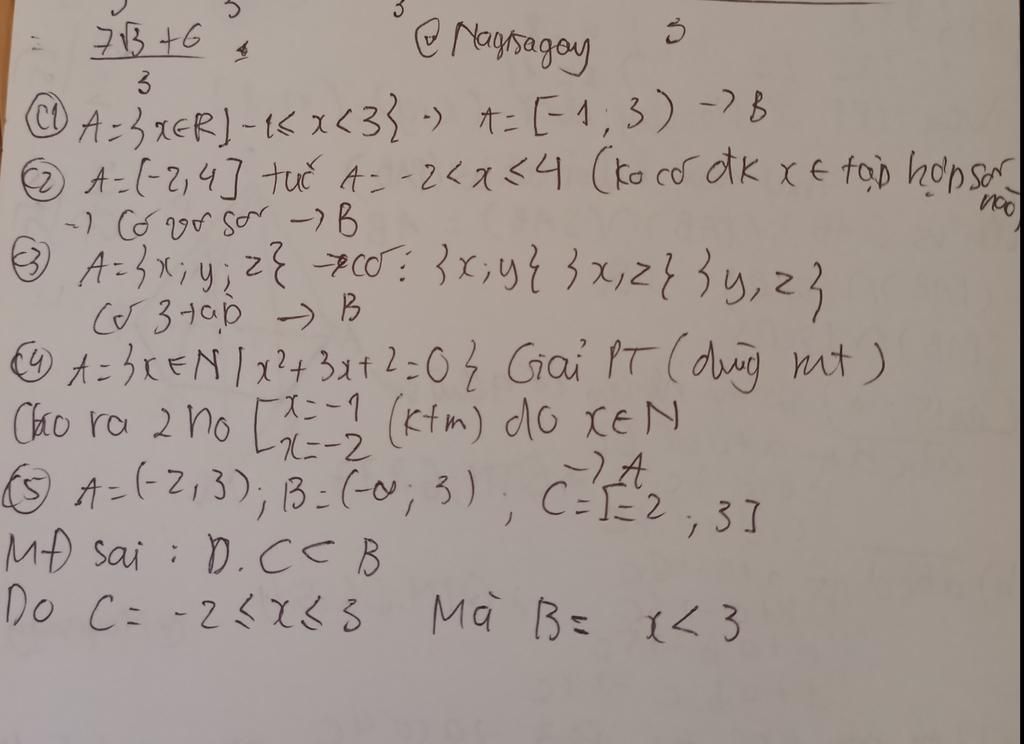 = 7√3 + 6 / 3 @Nagisagoy 3
C1 A = {x∈R | -1 ≤ x < 3} → A = [-1; 3) → B
C2 A = (-2, 4] tức A = -2 < x ≤ 4 (ko có đk x ∈ tập hợp số nào)
→ Có vô số → B
C3 A = {x; y; z} → có: {x; y} {x, z} {y, z}
Có 3 tập → B
C4 A = {x ∈ N | x² + 3x + 2 = 0} Giải PT (dùng mt)
Cho ra 2 no [x = -1 x = -2 (ktm) do x ∈ N
→ A
C5 A = (-2, 3); B = (-∞; 3); C = [-2; 3]
MĐ sai: D. C ⊂ B
Do C = -2 ≤ x ≤ 3 Mà B = x < 3